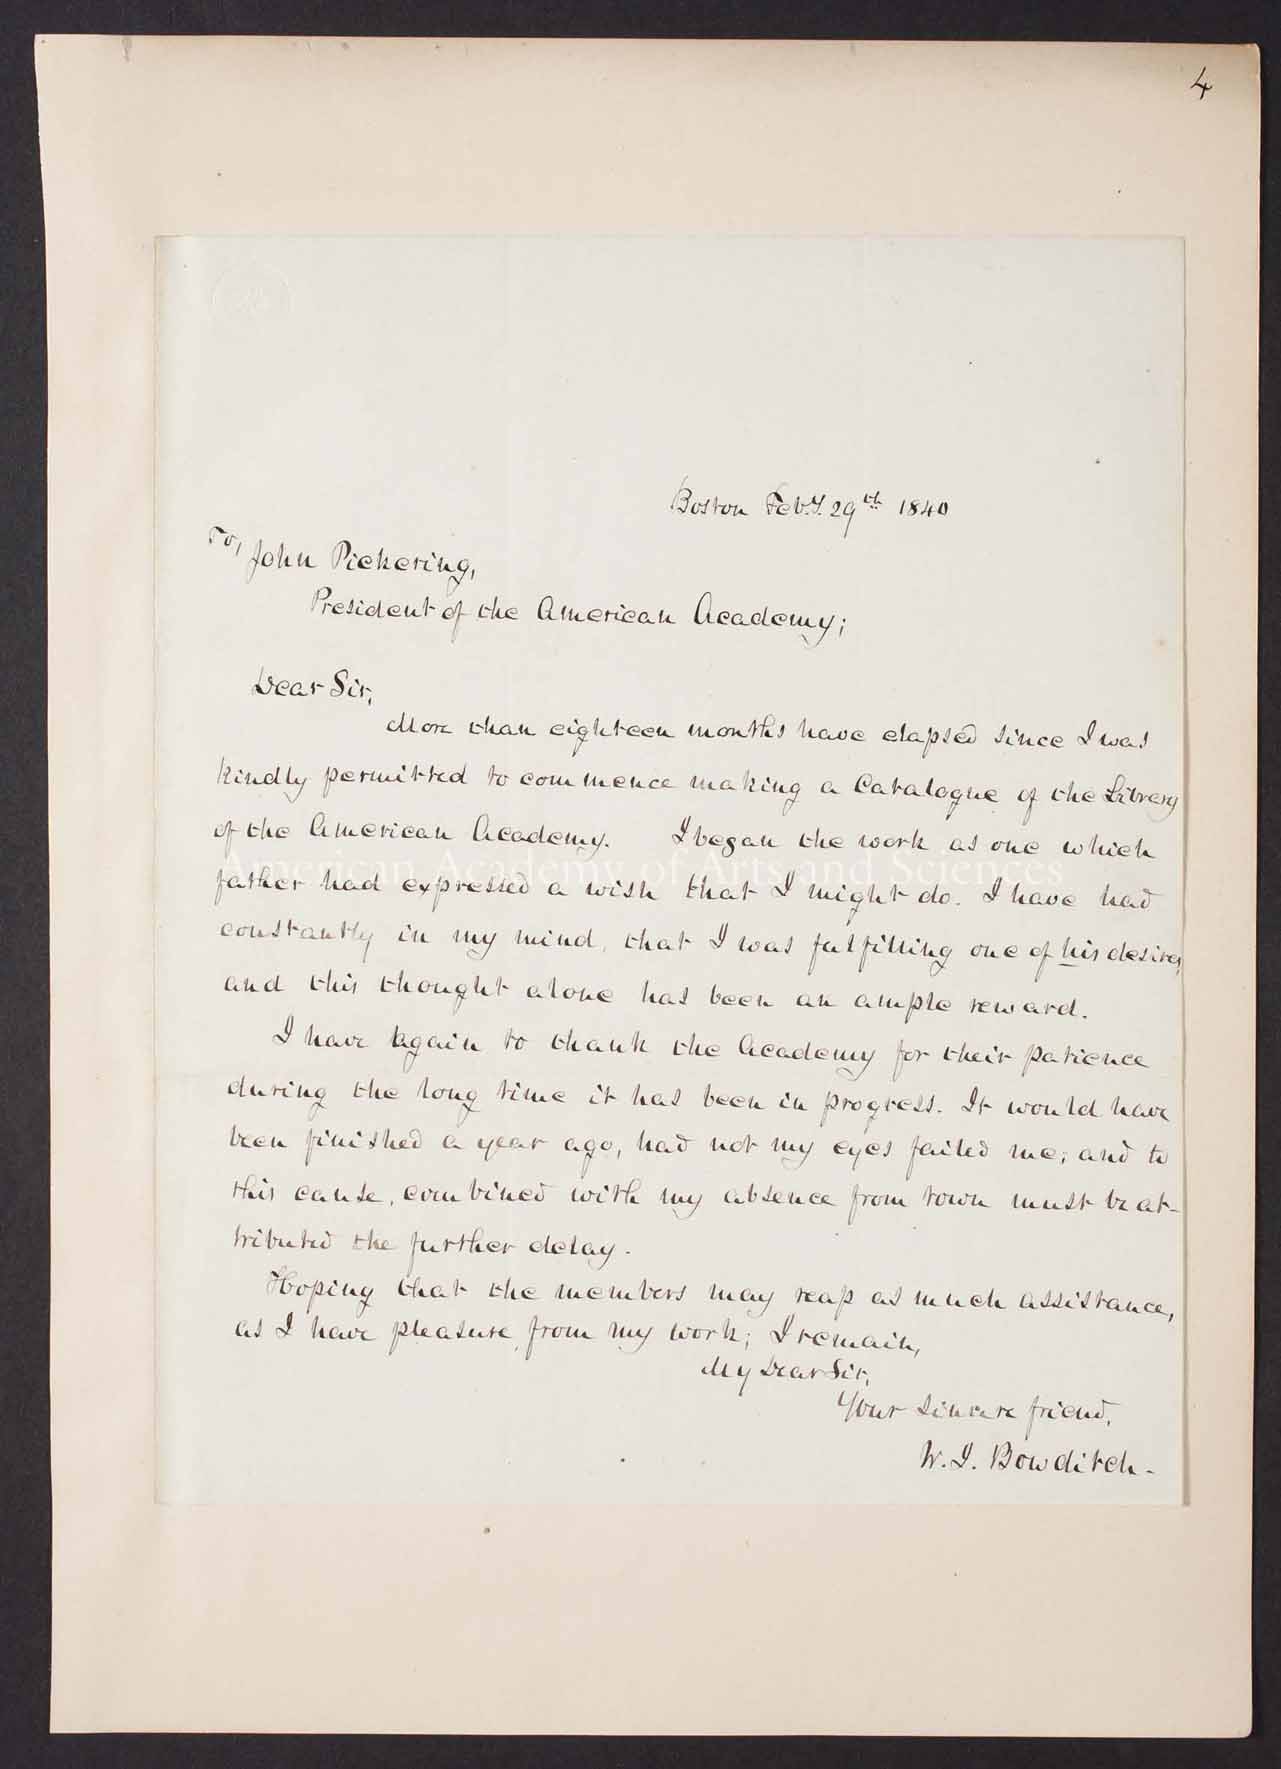 4
Boston Feb.y. 29th 1840
To,
John Pickering,
President of the American Academy;
Dear Sir,
More than eighteen months have elapsed since I was
kindly permitted to commence making a Catalogue of the Library
of the American Academy. I began the work as one which
American Academy of Arts and Sciences
father had expressed a wish that I might do. I have had
constantly in my mind, that I was fulfilling one of his desires,
and this thought alone has been an ample reward.
I have again to thank the Academy for their patience
during the long time it has been in progress. It would have
been finished a year ago, had not my eyes failed me; and to
this cause, combined with my absence from town must be at-
tributed the further delay.
Hoping that the members may reap as much assistance,
as I have pleasure, from my work; I remain,
My Dear Sir,
Your sincere friend,
W. I. Bowditch-